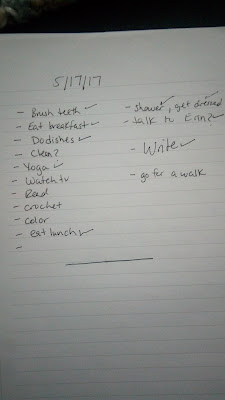 5/17/17
- Brush teeth ✓
- Eat breakfast ✓
- Do dishes ✓
- Clean?
- Yoga ✓
- Watch tv
- Read
- crochet
- color
- eat lunch ✓
-
- shower ✓, get dressed ✓
- talk to Erin? ✓
- Write ✓
- go for a walk